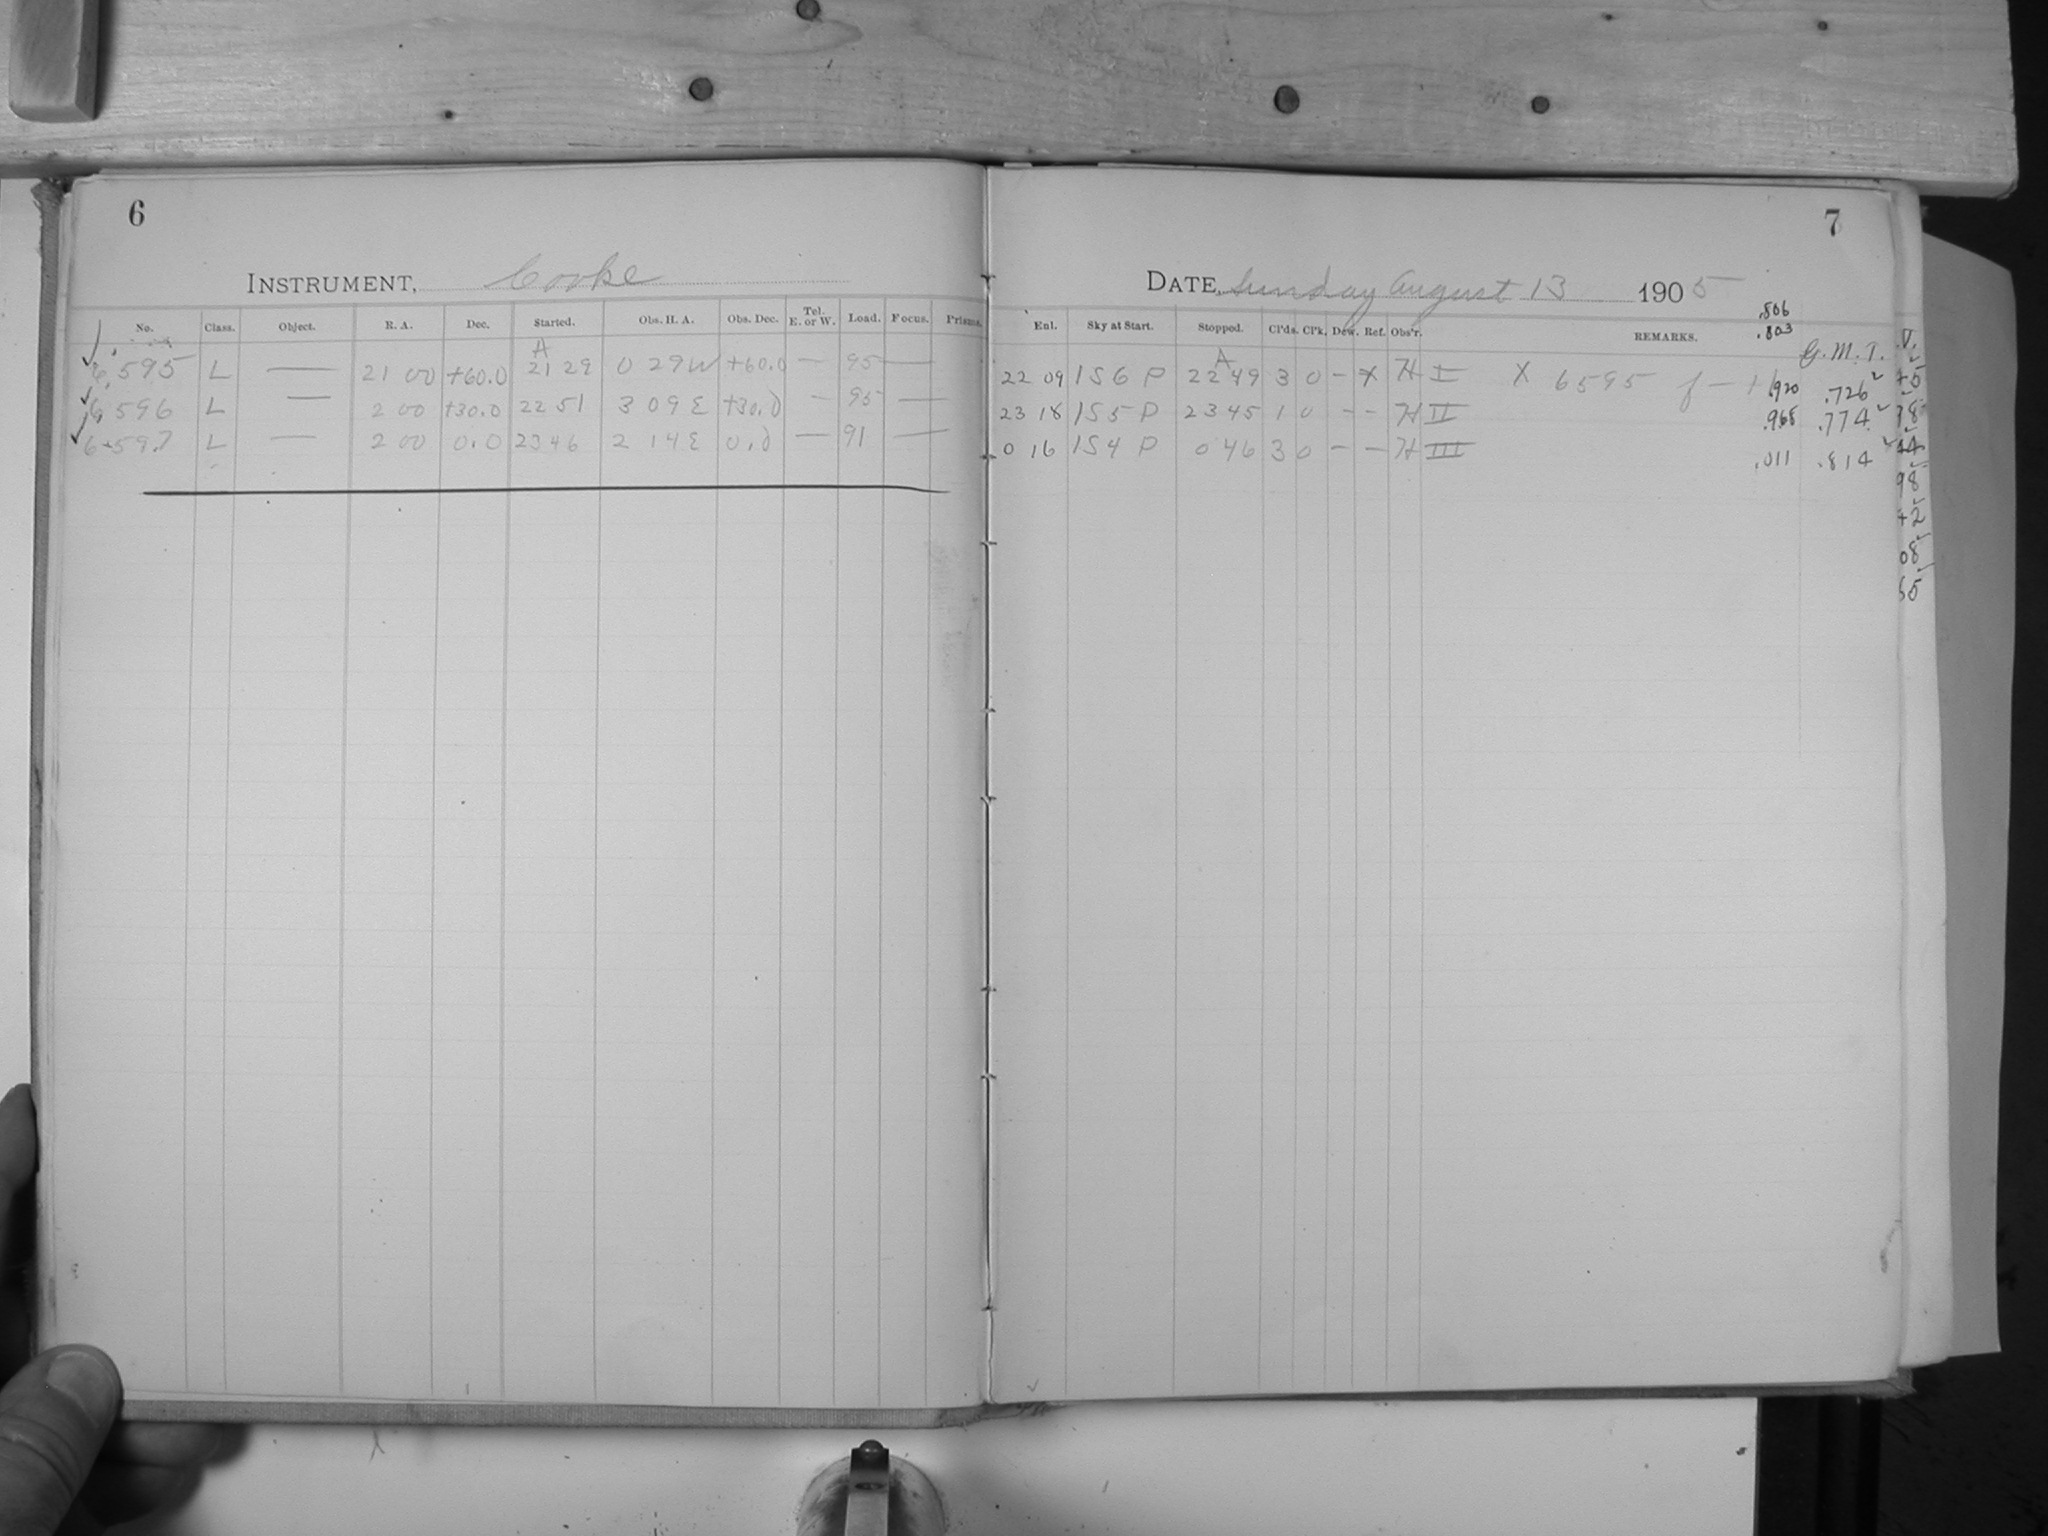 6
INSTRUMENT, Cooke
No. Class. Object. R. A. Dec. Started. Obs. H. A. Obs. Dec. Tel. E. or W. Load. Focus. Prisms.
A
6595 L — 21 00 +60.0 21 29 0 29W +60.0 — 95 —
6596 L — 2 00 +30.0 22 51 3 09E +30.0 - 95 —
6597 L — 2 00 0.0 23 46 2 14E 0.0 — 91 —
7
DATE Sunday August 13 1905
.806
.803
Enl. Sky at Start. Stopped. Cl'ds. Cl'k. Dew. Ref. Obs'r. REMARKS.
G. M. T.
A
22 09 1S6 P 22 49 3 0 - X H I X 6595 f — .920 .726
23 18 1S5 P 23 45 1 0 - - H II .968 .774
0 16 1S4 P 0 46 3 0 - - H III .011 .814
98
+2
08